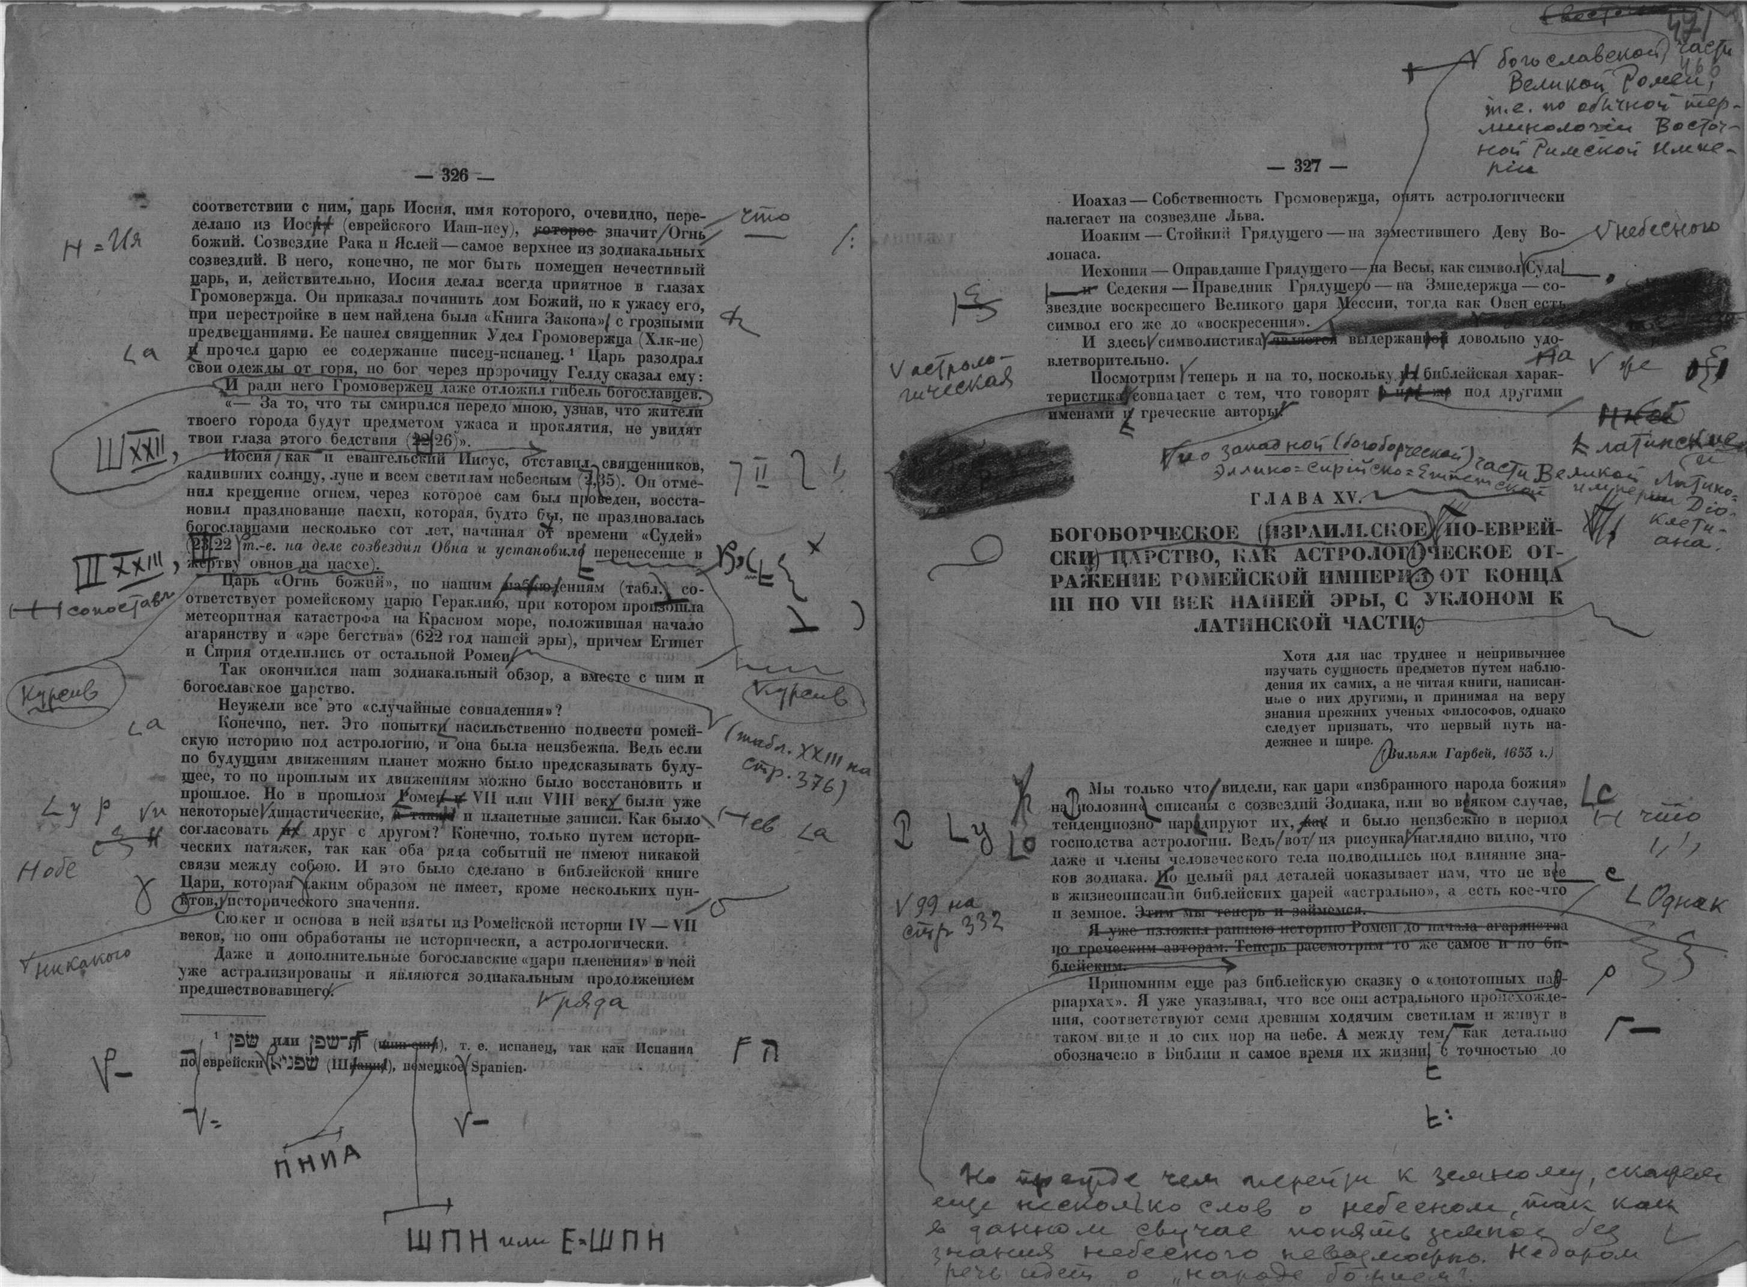 — 326 —
соответствии с ним, царь Иосия, имя которого, очевидно, пере-
делано из Иосии (еврейского Иаш-иеу), которое значит Огнь
божий. Созвездие Рака и Яслей — самое верхнее из зодиакальных
созвездий. В него, конечно, не мог быть помещен нечестивый
царь, и, действительно, Иосия делал всегда приятное в глазах
Громовержца. Он приказал починить дом Божий, но к ужасу его,
при перестройке в нем найдена была «Книга Закона» с грозными
предвещаниями. Ее нашел священник Удел Громовержца (Хлк-ие)
и прочел царю ее содержание писец-испанец. ¹ Царь разодрал
свои одежды от горя, но бог через пророчицу Гелду сказал ему:
И ради него Громовержец даже отложил гибель богославцев.
«— За то, что ты смирился передо мною, узнав, что жители
твоего города будут предметом ужаса и проклятия, не увидят
твои глаза этого бедствия (22,26)».
Иосия, как и евангельский Иисус, отставил священников,
кадивших солнцу, луне и всем светилам небесным (2,35). Он отме-
нил крещение огнем, через которое сам был проведен, восста-
новил празднование пасхи, которая, будто бы, не праздновалась
богославцами несколько сот лет, начиная от времени «Судей»
(23,22 т.-е. на деле созвездия Овна и установил перенесение в
жертву овнов на пасхе).
Царь «Огнь божий», по нашим (табл. ) со-
ответствует ромейскому царю Гераклию, при котором произошла
метеоритная катастрофа на Красном море, положившая начало
агарянству и «эре бегства» (622 год нашей эры), причем Египет
и Сирия отделились от остальной Ромеи.
Так окончился наш зодиакальный обзор, а вместе с ним и
богославское царство.
Неужели все это «случайные совпадения»?
Конечно, нет. Это попытки насильственно подвести ромей-
скую историю под астрологию, и она была неизбежна. Ведь если
по будущим движениям планет можно было предсказывать буду-
щее, то по прошлым их движениям можно было восстановить и
прошлое. Но в прошлом Ромеи и VII или VIII веку были уже
некоторые династические, а также и планетные записи. Как было
согласовать их друг с другом? Конечно, только путем истори-
ческих натяжек, так как оба ряда событий не имеют никакой
связи между собою. И это было сделано в библейской книге
Цари, которая таким образом не имеет, кроме нескольких пун-
ктов, исторического значения.
Сюжет и основа в ней взяты из Ромейской истории IV — VII
веков, но они обработаны не исторически, а астрологически.
Даже и дополнительные богославские «цари пленения» в ней
уже астрализированы и являются зодиакальным продолжением
предшествовавшего.
¹ שפן или ת־שפן, т. е. испанец, так как Испания
по еврейски שפניא, немецкое Spanien.
Н = Ия
что
La
Ш XXII,
7 II
III XXIII,
сопостав
Курсив
Курсив
La
(табл. XXIII на
стр. 376)
La
никакого
ряда
ПНИА
ШПН или Е=ШПН
— 327 —
Иоахаз — Собственность Громовержца, опять астрологически
налегает на созвездие Льва.
Иоаким — Стойкий Грядущего — на заместившего Деву Во-
лопаса.
Иехония — Оправдание Грядущего — на Весы, как символ Суда
и Седекия — Праведник Грядущего — на Змиедержца — со-
звездие воскресшего Великого царя Мессии, тогда как Овен есть
символ его же до «воскресения».
И здесь символистика является выдержанной довольно удо-
влетворительно.
Посмотрим теперь и на то, поскольку и библейская харак-
теристика совпадает с тем, что говорят под другими
именами и греческие авторы
ГЛАВА XV.
БОГОБОРЧЕСКОЕ (ИЗРАИЛЬСКОЕ ПО-ЕВРЕЙ-
СКИ) ЦАРСТВО, КАК АСТРОЛОГИЧЕСКОЕ ОТ-
РАЖЕНИЕ РОМЕЙСКОЙ ИМПЕРИИ ОТ КОНЦА
III ПО VII ВЕК НАШЕЙ ЭРЫ, С УКЛОНОМ К
ЛАТИНСКОЙ ЧАСТИ.
Хотя для нас труднее и непривычнее
изучать сущность предметов путем наблю-
дения их самих, а не читая книги, написан-
ные о них другими, и принимая на веру
знания прежних ученых философов, однако
следует признать, что первый путь на-
дежнее и шире.
(Вильям Гарвей, 1653 г.)
Мы только что видели, как цари «избранного народа божия»
на половину списаны с созвездий Зодиака, или во всяком случае,
тенденциозно пародируют их, как и было неизбежно в период
господства астрологии. Ведь вот из рисунка наглядно видно, что
даже и члены человеческого тела подводились под влияние зна-
ков зодиака. Но целый ряд деталей показывает нам, что не все
в жизнеописании библейских царей «астрально», а есть кое-что
и земное. Этим мы теперь и займемся.
Я уже изложил раннюю историю Ромеи до начала агарянства
по греческим авторам. Теперь рассмотрим то же самое и по би-
блейским.
Припомним еще раз библейскую сказку о «допотопных пат-
риархах». Я уже указывал, что все они астрального происхожде-
ния, соответствуют семи древним ходячим светилам и живут в
таком виде и до сих пор на небе. А между тем, как детально
обозначено в Библии и самое время их жизни с точностью до
богославской) части
Великой Ромеи,
т.е. по обычной тер-
минологии Восточ-
ной Римской Импе-
рии
небесного
астроло-
гическая
же
латинские
по западной (богоборческой) части Великой Латино-
Эллино-Сирийско-Египетской империи Дио-
клети-
ана.
что
99 на
стр 332
Однак
Но прежде чем перейти к земному, скажем
еще несколько слов о небесном, так как
в данном случае понять земное без
знания небесного невозможно. Недаром
речь идет о „народе божием".